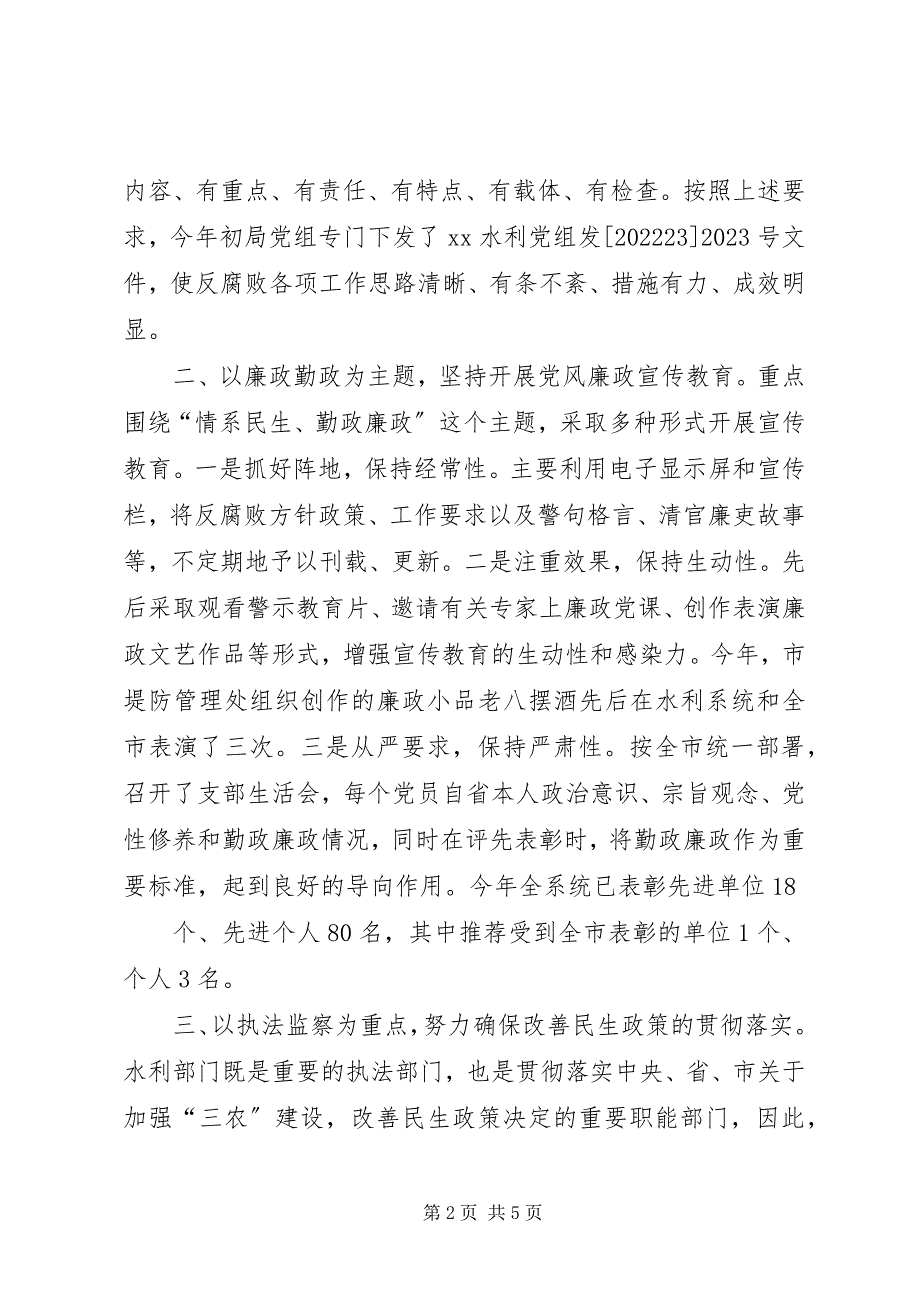 内容、有重点、有责任、有特点、有载体、有检查。按照上述要
求，今年初局党组专门下发了 xx 水利党组发[202223]2023 号文
件，使反腐败各项工作思路清晰、有条不紊、措施有力、成效明
显。
二、以廉政勤政为主题，坚持开展党风廉政宣传教育。重点
围绕“情系民生、勤政廉政〞这个主题，采取多种形式开展宣传
教育。一是抓好阵地，保持经常性。主要利用电子显示屏和宣传
栏，将反腐败方针政策、工作要求以及警句格言、清官廉吏故事
等，不定期地予以刊载、更新。二是注重效果，保持生动性。先
后采取观看警示教育片、邀请有关专家上廉政党课、创作表演廉
政文艺作品等形式，增强宣传教育的生动性和感染力。今年，市
堤防管理处组织创作的廉政小品老八摆酒先后在水利系统和全
市表演了三次。三是从严要求，保持严肃性。按全市统一部署，
召开了支部生活会，每个党员自省本人政治意识、宗旨观念、党
性修养和勤政廉政情况，同时在评先表彰时，将勤政廉政作为重
要标准，起到良好的导向作用。今年全系统已表彰先进单位 18
个、先进个人 80 名，其中推荐受到全市表彰的单位 1 个、
个人 3 名。
三、以执法监察为重点，努力确保改善民生政策的贯彻落实。
水利部门既是重要的执法部门，也是贯彻落实中央、省、市关于
加强“三农〞建设，改善民生政策决定的重要职能部门，因此，
第 2 页 共 5 页